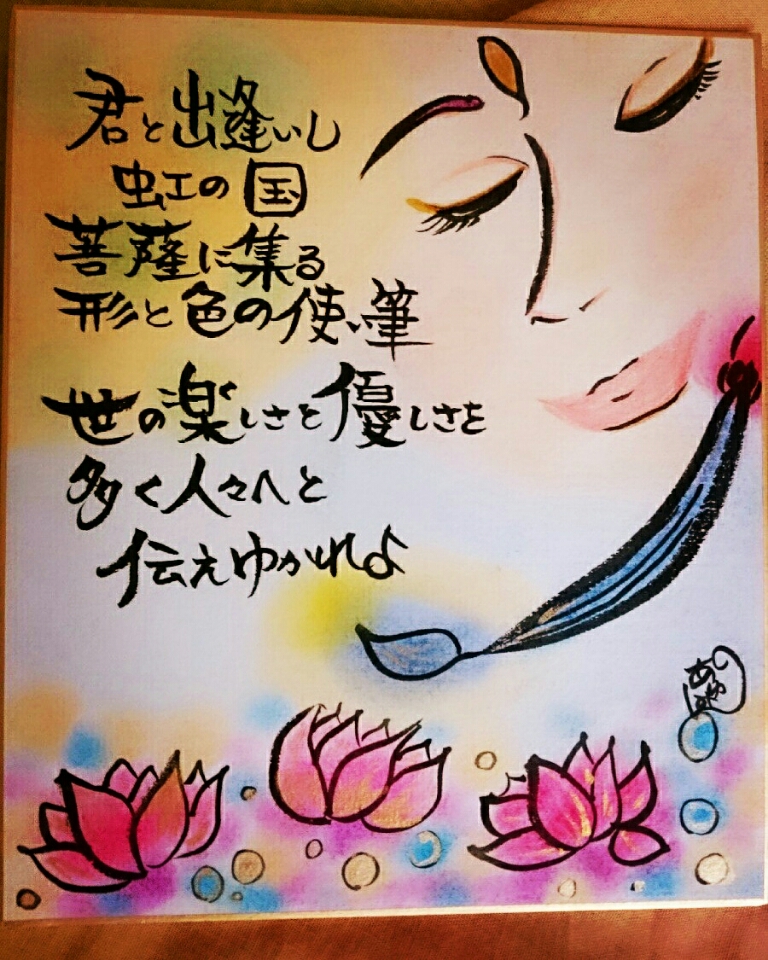 君と出逢いし
虹の国
菩薩に集る
形と色の使い筆
世の楽しさと優しさを
多く人々へと
伝えゆかれよ